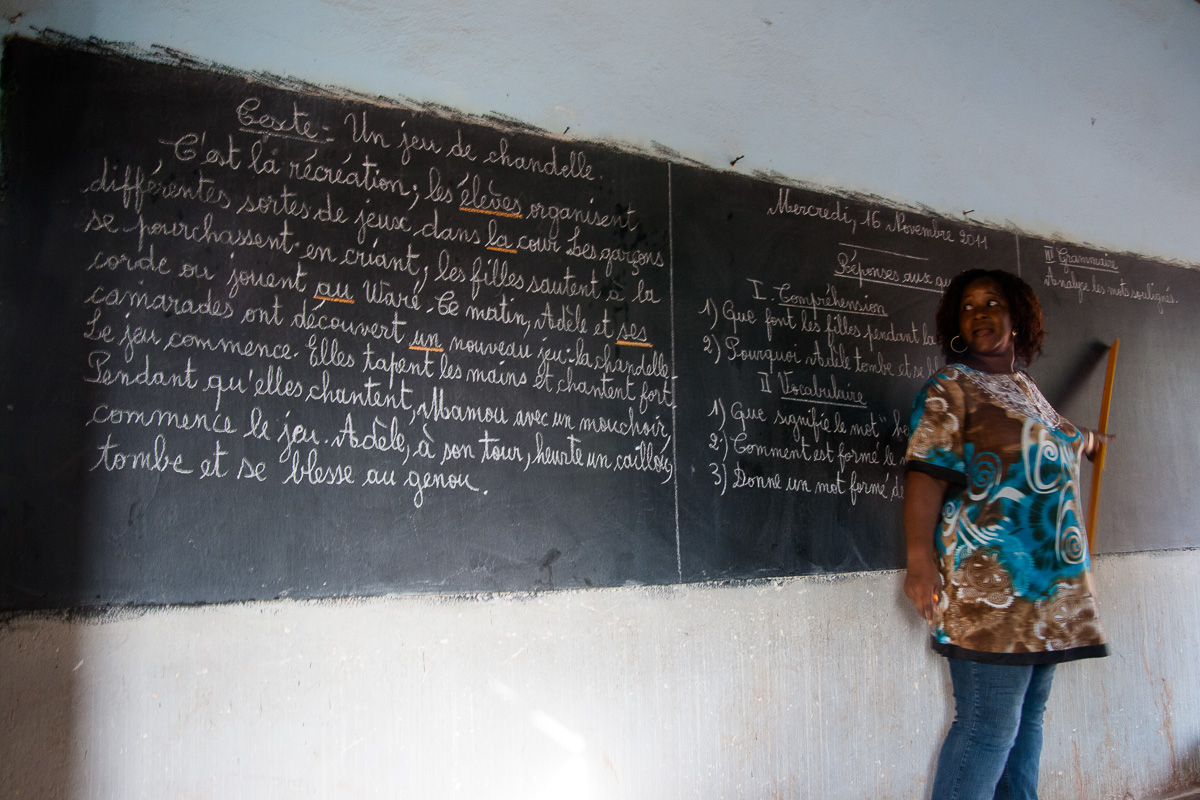 Texte : Un jeu de chandelle.
C'est la récréation ; les élèves organisent
différentes sortes de jeux dans la cour. Les garçons
se pourchassent en criant, les filles sautent à la
corde ou jouent au Waré. Ce matin, Adèle et ses
camarades ont découvert un nouveau jeu : la chandelle.
Le jeu commence. Elles tapent les mains et chantent fort.
Pendant qu'elles chantent, Mamou avec un mouchoir,
commence le jeu. Adèle, à son tour, heurte un caillou,
tombe et se blesse au genou.
Mercredi, 16 Novembre 2011
Réponses aux
I Compréhension
1) Que font les filles pendant la
2) Pourquoi Adèle tombe et se
II Vocabulaire
1) Que signifie le mot "
2) Comment est formé le
3) Donne un mot formé
III Grammaire
Analyse les mots soulignés.